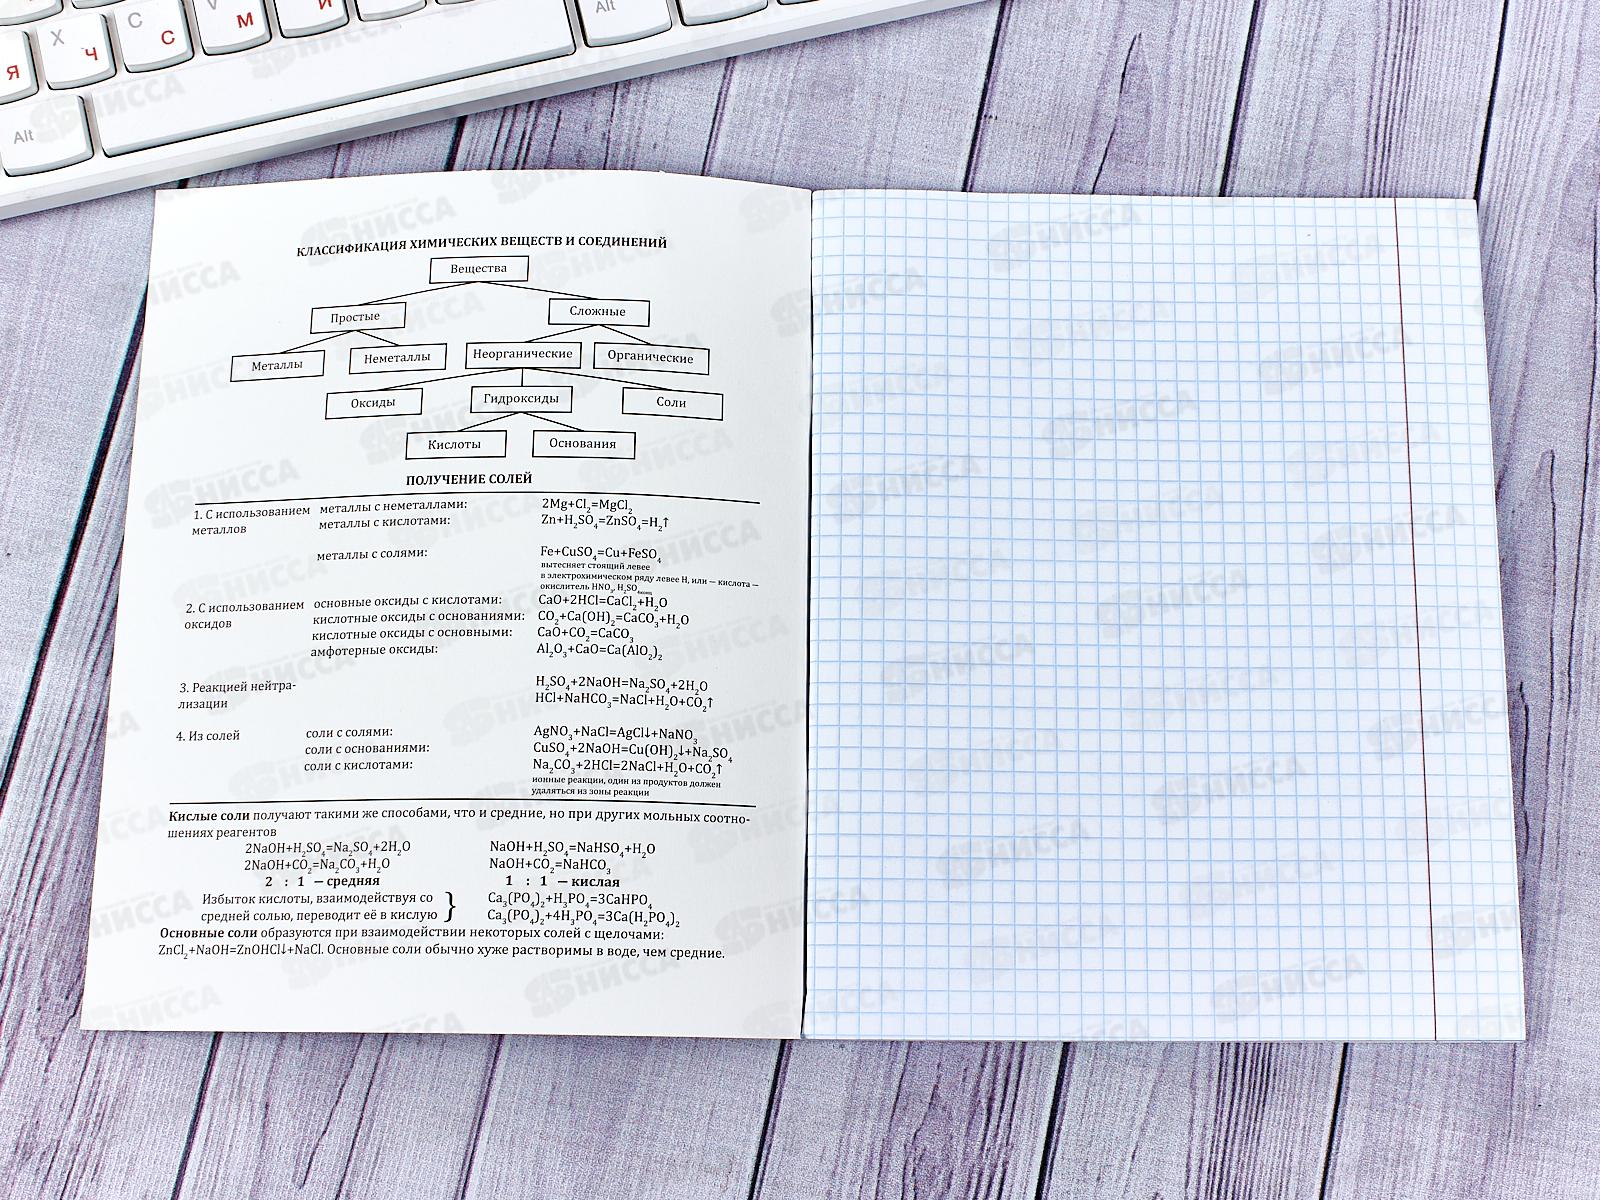 Я
X Ч
C С
V М
И
Alt
Alt
КЛАССИФИКАЦИЯ ХИМИЧЕСКИХ ВЕЩЕСТВ И СОЕДИНЕНИЙ
Вещества
Простые Сложные
Металлы Неметаллы Неорганические Органические
Оксиды Гидроксиды Соли
Кислоты Основания
ПОЛУЧЕНИЕ СОЛЕЙ
1. С использованием металлы с неметаллами: 2Mg+Cl₂=MgCl₂
металлов металлы с кислотами: Zn+H₂SO₄=ZnSO₄=H₂↑
металлы с солями: Fe+CuSO₄=Cu+FeSO₄
вытесняет стоящий левее
в электрохимическом ряду левее H, или — кислота —
окислитель HNO₃, H₂SO₄конц
2. С использованием основные оксиды с кислотами: CaO+2HCl=CaCl₂+H₂O
оксидов кислотные оксиды с основаниями: CO₂+Ca(OH)₂=CaCO₃+H₂O
кислотные оксиды с основными: CaO+CO₂=CaCO₃
амфотерные оксиды: Al₂O₃+CaO=Ca(AlO₂)₂
3. Реакцией нейтра- H₂SO₄+2NaOH=Na₂SO₄+2H₂O
лизации HCl+NaHCO₃=NaCl+H₂O+CO₂↑
4. Из солей соли с солями: AgNO₃+NaCl=AgCl↓+NaNO₃
соли с основаниями: CuSO₄+2NaOH=Cu(OH)₂↓+Na₂SO₄
соли с кислотами: Na₂CO₃+2HCl=2NaCl+H₂O+CO₂↑
ионные реакции, один из продуктов должен
удаляться из зоны реакции
Кислые соли получают такими же способами, что и средние, но при других мольных соотно-
шениях реагентов
2NaOH+H₂SO₄=Na₂SO₄+2H₂O NaOH+H₂SO₄=NaHSO₄+H₂O
2NaOH+CO₂=Na₂CO₃+H₂O NaOH+CO₂=NaHCO₃
2 : 1 — средняя 1 : 1 — кислая
Избыток кислоты, взаимодействуя со } Ca₃(PO₄)₂+H₃PO₄=3CaHPO₄
средней солью, переводит её в кислую Ca₃(PO₄)₂+4H₃PO₄=3Ca(H₂PO₄)₂
Основные соли образуются при взаимодействии некоторых солей с щелочами:
ZnCl₂+NaOH=ZnOHCl↓+NaCl. Основные соли обычно хуже растворимы в воде, чем средние.
НИССА